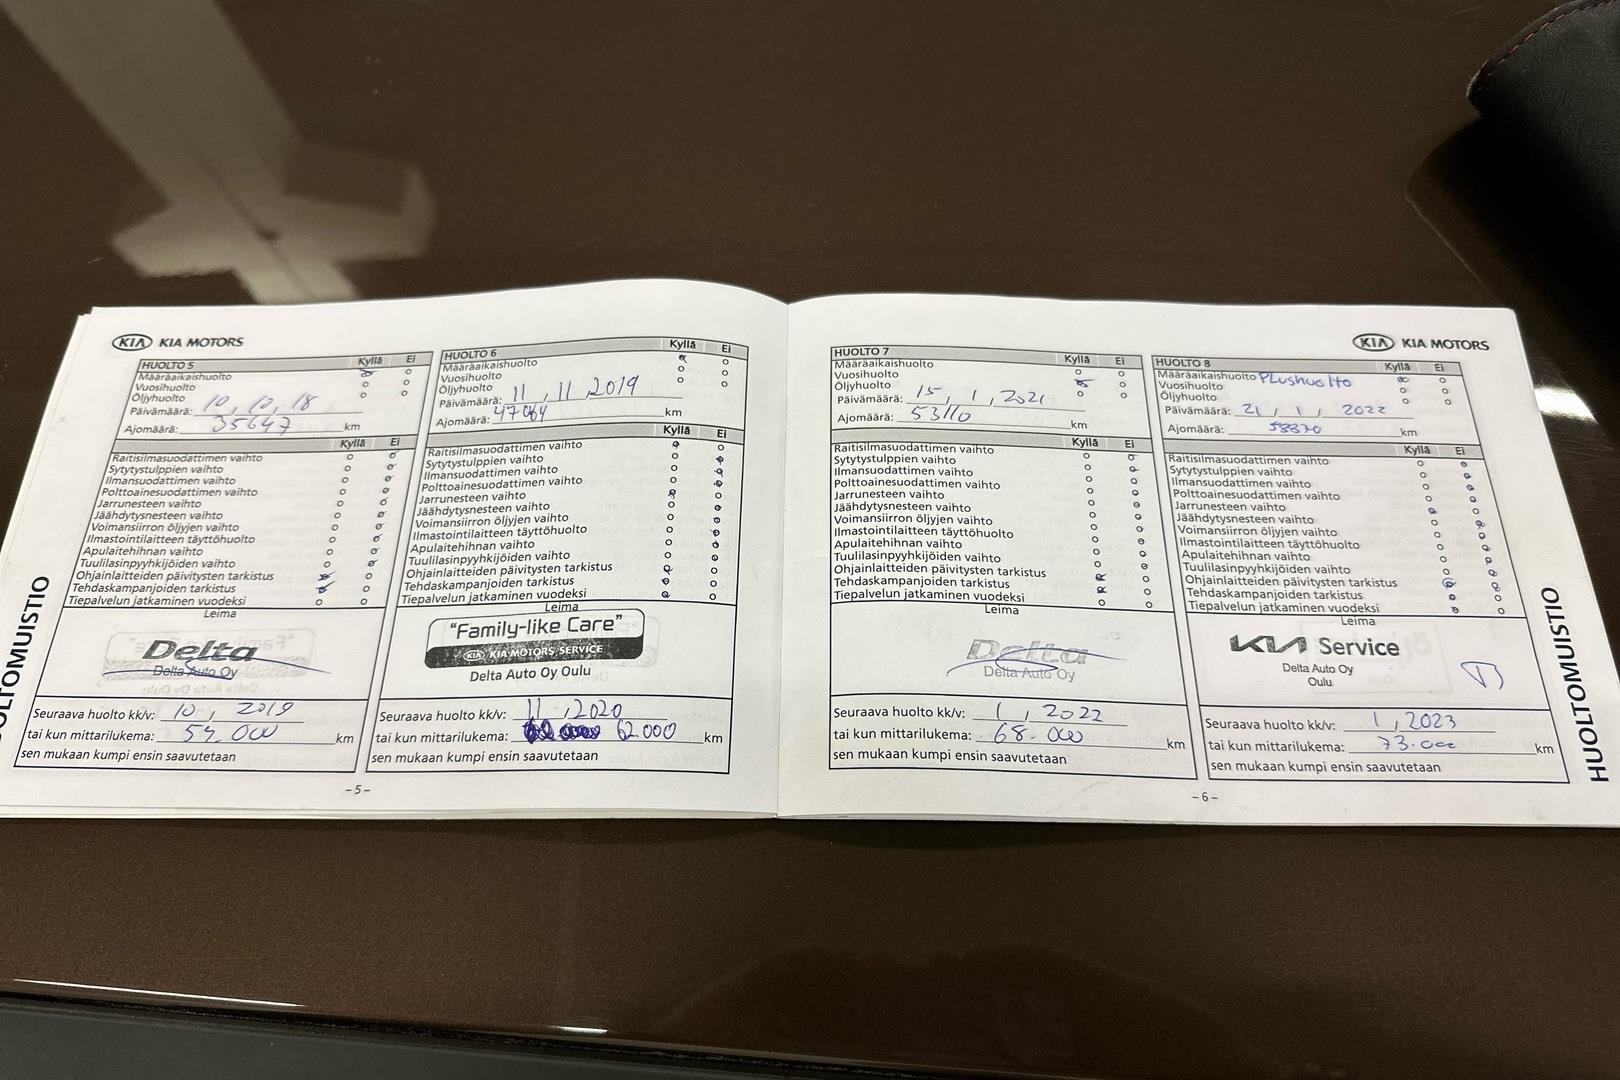 KIA KIA MOTORS
HUOLTO 5 Kyllä Ei
Määräaikaishuolto
Vuosihuolto
Öljyhuolto
Päivämäärä: 10, 10, 18
Ajomäärä: 35647 km
Kyllä Ei
Raitisilmasuodattimen vaihto
Sytytystulppien vaihto
Ilmansuodattimen vaihto
Polttoainesuodattimen vaihto
Jarrunesteen vaihto
Jäähdytysnesteen vaihto
Voimansiirron öljyjen vaihto
Ilmastointilaitteen täyttöhuolto
Apulaitehihnan vaihto
Tuulilasinpyyhkijöiden vaihto
Ohjainlaitteiden päivitysten tarkistus
Tehdaskampanjoiden tarkistus
Tiepalvelun jatkaminen vuodeksi
Leima
Delta
Delta Auto Oy
Seuraava huolto kk/v: 10, 2019
tai kun mittarilukema: 54.000 km
sen mukaan kumpi ensin saavutetaan
HUOLTO 6 Kyllä Ei
Määräaikaishuolto
Vuosihuolto
Öljyhuolto
Päivämäärä: 11, 11, 2019
Ajomäärä: 47064 km
Kyllä Ei
Raitisilmasuodattimen vaihto
Sytytystulppien vaihto
Ilmansuodattimen vaihto
Polttoainesuodattimen vaihto
Jarrunesteen vaihto
Jäähdytysnesteen vaihto
Voimansiirron öljyjen vaihto
Ilmastointilaitteen täyttöhuolto
Apulaitehihnan vaihto
Tuulilasinpyyhkijöiden vaihto
Ohjainlaitteiden päivitysten tarkistus
Tehdaskampanjoiden tarkistus
Tiepalvelun jatkaminen vuodeksi
Leima
"Family-like Care"
KIA KIA MOTORS SERVICE
Delta Auto Oy Oulu
Seuraava huolto kk/v: 11, 2020
tai kun mittarilukema: 62.000 km
sen mukaan kumpi ensin saavutetaan
-5-
HUOLTOMUISTIO
KIA KIA MOTORS
HUOLTO 7 Kyllä Ei
Määräaikaishuolto
Vuosihuolto
Öljyhuolto
Päivämäärä: 15, 1, 2021
Ajomäärä: 53110 km
Kyllä Ei
Raitisilmasuodattimen vaihto
Sytytystulppien vaihto
Ilmansuodattimen vaihto
Polttoainesuodattimen vaihto
Jarrunesteen vaihto
Jäähdytysnesteen vaihto
Voimansiirron öljyjen vaihto
Ilmastointilaitteen täyttöhuolto
Apulaitehihnan vaihto
Tuulilasinpyyhkijöiden vaihto
Ohjainlaitteiden päivitysten tarkistus
Tehdaskampanjoiden tarkistus
Tiepalvelun jatkaminen vuodeksi
Leima
Delta
Delta Auto Oy
Seuraava huolto kk/v: 1, 2022
tai kun mittarilukema: 68.000 km
sen mukaan kumpi ensin saavutetaan
HUOLTO 8 Kyllä Ei
Määräaikaishuolto PLushuolto
Vuosihuolto
Öljyhuolto
Päivämäärä: 21, 1, 2022
Ajomäärä: 58870 km
Kyllä Ei
Raitisilmasuodattimen vaihto
Sytytystulppien vaihto
Ilmansuodattimen vaihto
Polttoainesuodattimen vaihto
Jarrunesteen vaihto
Jäähdytysnesteen vaihto
Voimansiirron öljyjen vaihto
Ilmastointilaitteen täyttöhuolto
Apulaitehihnan vaihto
Tuulilasinpyyhkijöiden vaihto
Ohjainlaitteiden päivitysten tarkistus
Tehdaskampanjoiden tarkistus
Tiepalvelun jatkaminen vuodeksi
Leima
KIA Service
Delta Auto Oy
Oulu
Seuraava huolto kk/v: 1, 2023
tai kun mittarilukema: 73.000 km
sen mukaan kumpi ensin saavutetaan
-6-
HUOLTOMUISTIO